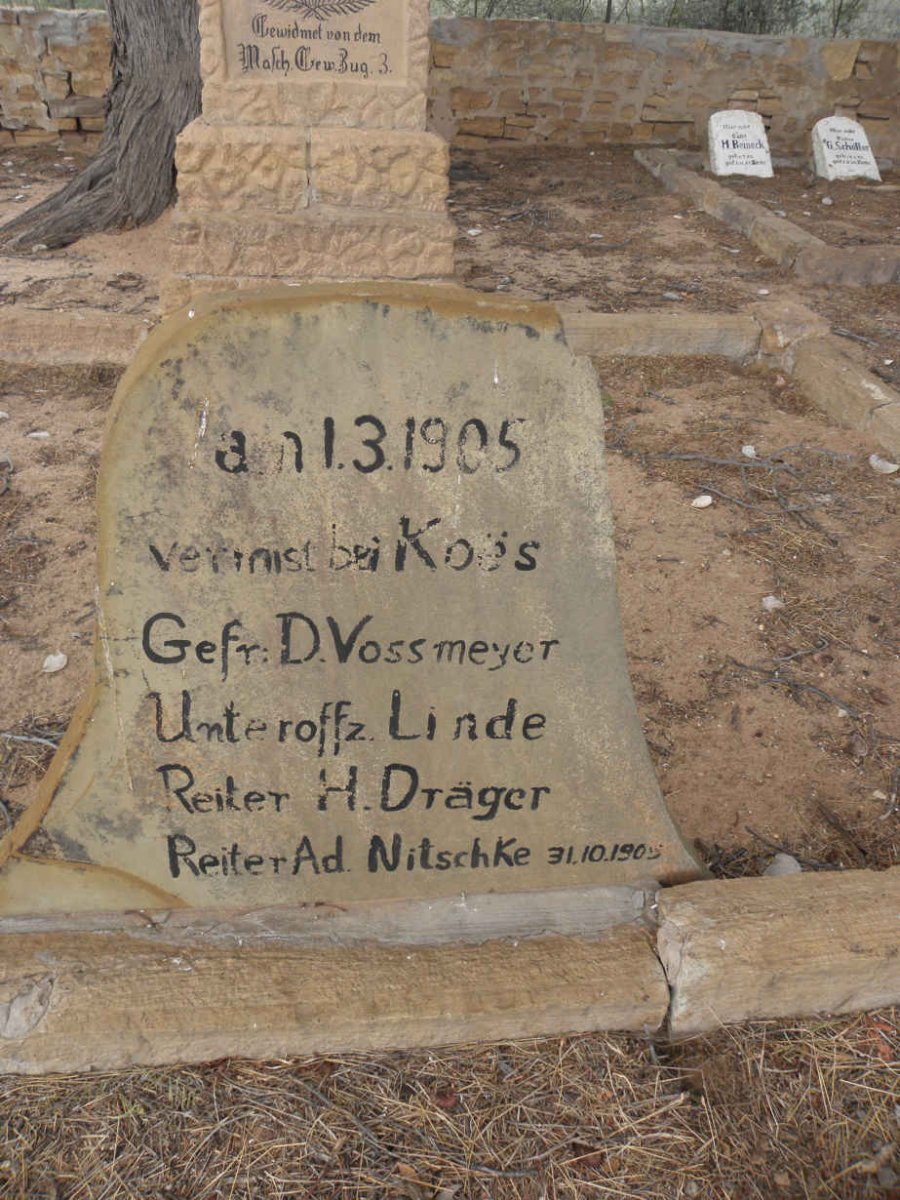 Gewidmet von dem
Masch. Gew. Zug. 3.
H Beineck
G. Schuller
am 1.3.1905
vermist bei Koës
Gefr: D. Vossmeyer
Unteroffz. Linde
Reiter H. Dräger
Reiter Ad. Nitschke 31.10.1905